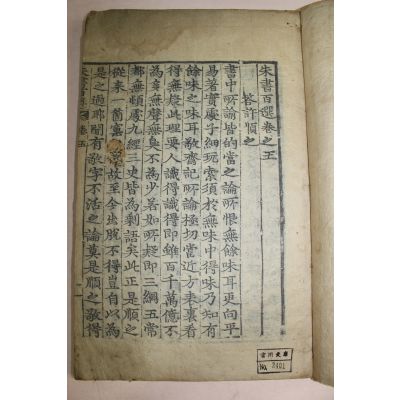 朱書百選卷之五
答許順之
書中所論皆的當之論所恨無餘味耳更向平
易著實處子細玩索須於無味中得味乃知有
餘味之味耳敬齋記所論極切當近方表裏看
得無疑此理要人識得識得即雖百千萬億不
為多無聲無臭不為少若如所疑即三綱五常
都無頓處九經三史皆為剩語矣此正是順之
從來一箇窠 故至今出脫不得豈自以為
是之過耶聞有敬字不活之論莫是順之敬得
卷五
No. 2401